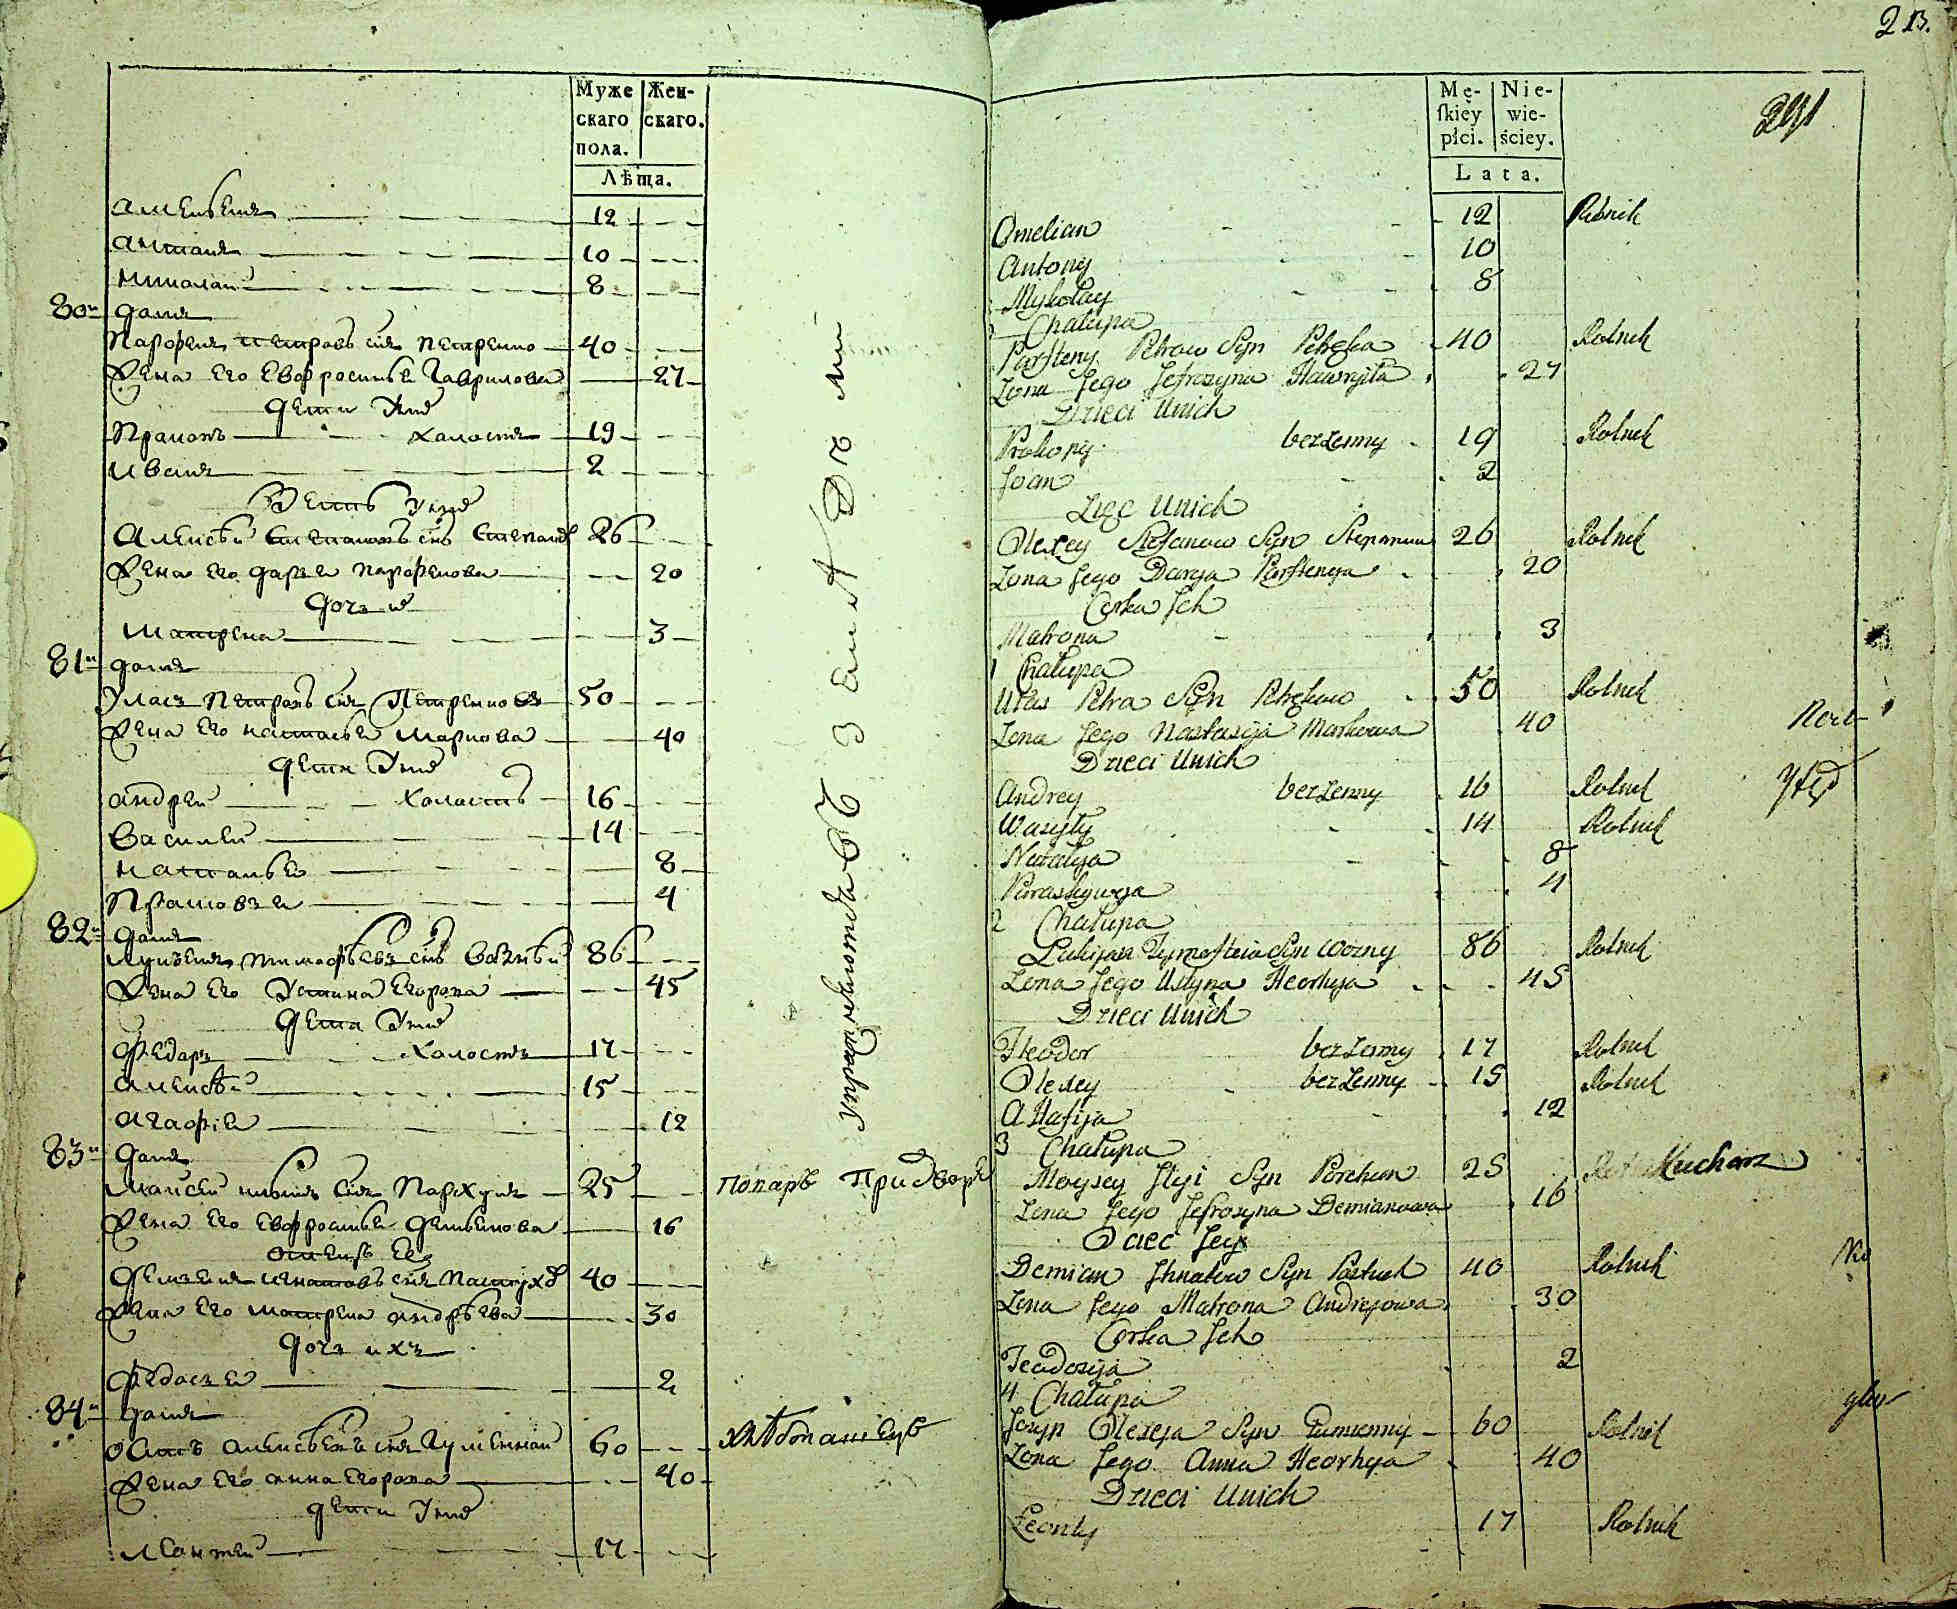 213.
Муже
скаго
пола.
Жен-
скаго.
Лѣта.
Амельянъ 12
Антонъ 10
Николай 8
80й домъ
Парфенъ Петровъ сынъ Петренко 40
Жена его Евфросинья Гаврилова 27
Дети у них
Прокопъ холостъ 19
Иванъ 2
Зеть у них
Алексѣй Степановъ сынъ 26
Жена его Дарья Парфенова 20
Дочь их
Матрена 3
81й домъ
Уласъ Петровъ сынъ Петренковъ 50
Жена его Настасья Маркова 40
Дети у них
Андрей холостъ 16
Василей 14
Наталья 8
Прасковья 4
82й домъ
Лукьянъ Тимофѣевъ сынъ Возный 86
Жена его Устина Егорова 45
Дети у них
Федоръ холостъ 17
Алексѣй 15
Агафія 12
83й домъ
Мойсей Ильинъ сынъ Порхунъ 25
Жена его Евфросинья Демьянова 16
Отецъ ее
Демьянъ Игнатовъ сынъ Пастухъ 40
Жена его Матрена Андрѣева 30
Дочь ихъ
Федосья 2
84й домъ
Осипъ Алексѣевъ сынъ Гуменный 60
Жена его Анна Егорова 40
дети у них
Леонтей 17
упражняются въ земледелии
поваръ придворн
хлѣбопашецъ
Mę-
ſkiey
płci.
Nie-
wie-
ściey.
Lata.
291
Omelian 12 Rolnik
Antony 10
Mykołay 8
Chałupa
Parfteny Petrow Syn Petręka 40 Rolnik
Zona Jego Jefrozyna Hawryła 27
Dzieci Unich
Prokopiy bezzenny 19 Rolnik
Joan 2
Zięć Unich
Olexey Stefanow Syn 26 Rolnik
Zona Jego Darya Parftenya 20
Corka Ich
Matrona 3
1 Chałupa
Ułas Petra Syn Petrękow 50 Rolnik
Zona Jego Nastasija Markowa 40
Dzieci Unich
Andrey bezzenny 16 Rolnik
Wasyly 14 Rolnik
Natalya 8
Paraskywya 4
2 Chałupa
Łukijan Tymofteia Syn Wozny 86 Rolnik
Zona Jego Ustyna Heorhya 45
Dzieci Unich
Fteodor bezzenny 17 Rolnik
Olexey bezzenny 15 Rolnik
Ahafija 12
3 Chałupa
Moysey Ilyi Syn Porchun 25 Kucharz
Zona Jego Jefrosyna Demianowa 16
Ociec Jey
Demian Ihnatow Syn Pastuch 40 Rolnik
Zona Jego Matrona Andrejowa 30
Corka Ich
Teodosija 2
4 Chałupa
Jozyp Olexeja Syn Gumienny 60 Rolnik
Zona Jego Anna Heorhya 40
Dzieci Unich
Leonty 17 Rolnik